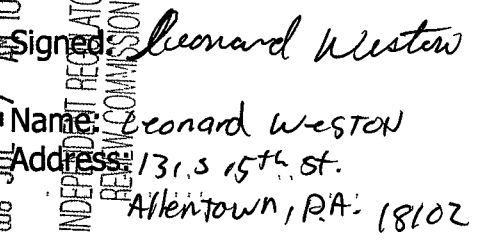 Signed: Leonard Weston
Name: Leonard Weston
Address: 131 S 15th St.
Allentown, PA. 18102
INDEPENDENT REGULATORY
REVIEW COMMISSION